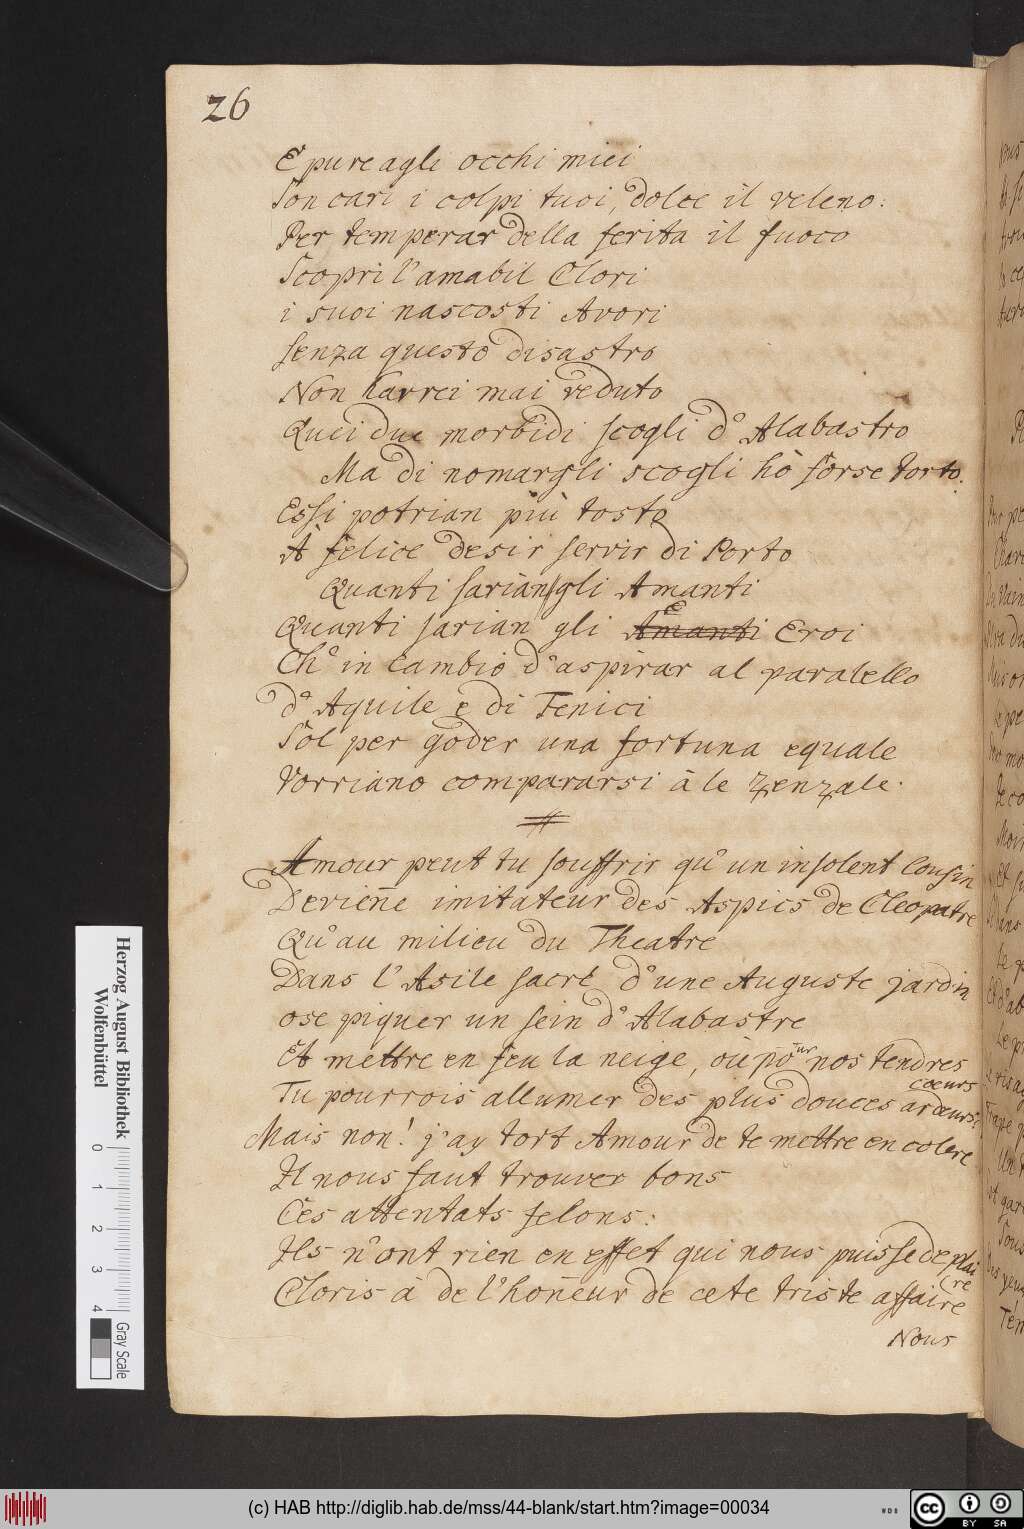 26
E pure agli occhi miei
Son cari i colpi tuoi, dolce il veleno:
Per temperar della ferita il fuoco
Scopri l'amabil Clori
i suoi nascosti Avori
senza questo disastro
Non havrei mai veduto
Quei due morbidi scogli d'Alabastro
Ma di nomargli scogli hò forse torto.
Essi potrian più tosto
A felice desir servir di Porto
Quanti sarian gli Amanti
Quanti sarian gli Amanti Eroi
Ch'in cambio d'aspirar al paralello
d'Aquile e di Fenici
Sol per goder una fortuna equale
Vorriano compararsi à le Zenzale.
Amour peut tu souffrir qu'un insolent Cousin
Devien̄e imitateur des Aspics de Cleopatre
Qu'au milieu du Theatre
Dans l'Asile sacrè d'une Auguste jardin
ose piquer un sein d'Alabastre
Et mettre en feu la neige, où po^ur nos tendres
coeurs
Tu pourrois allumer des plus douces ardeurs?
Mais non! j'ay tort Amour de te mettre en colere
Il nous faut trouver bons
Ces attentats felons:
Ils n'ont rien en effet qui nous puisse de plai
re
Cloris à de l'hon̄eur de cete triste affaire
Nous
Herzog August Bibliothek
Wolfenbüttel
0 1 2 3 4
Gray Scale
(c) HAB http://diglib.hab.de/mss/44-blank/start.htm?image=00034
WDB
cc BY SA